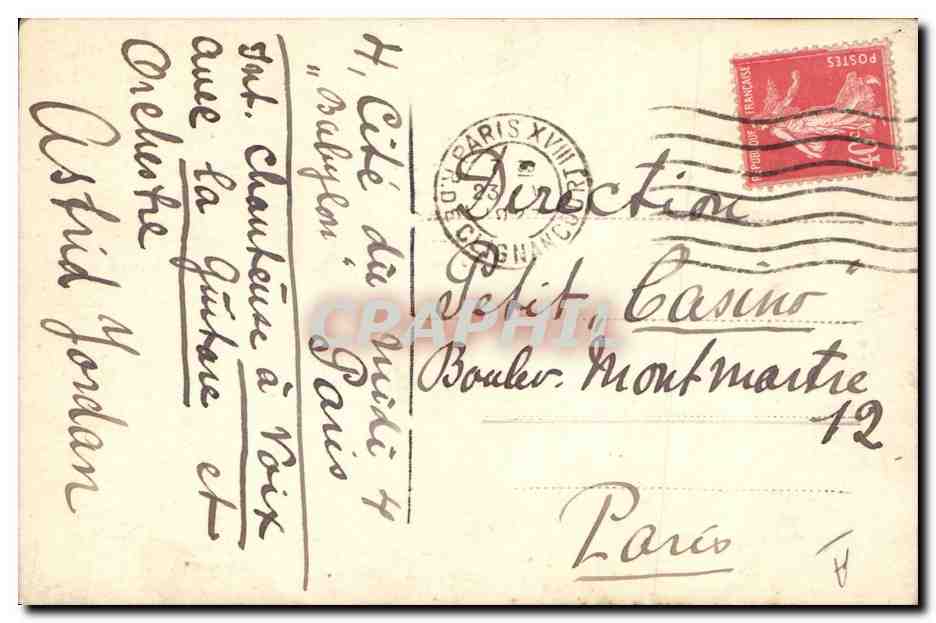 4, Cité du midi 4
„ Babylon " Paris
Int. Chanteuse à Voix
avec la Guitare et
Orchestre
Astrid Jordan
Direction
Petit „ Casino "
Boulev. Montmartre
12
Paris
PARIS XVIII
R. DE CLIGNANCOURT
23
REPUBLIQUE FRANÇAISE
POSTES
40c
CPAPHIL